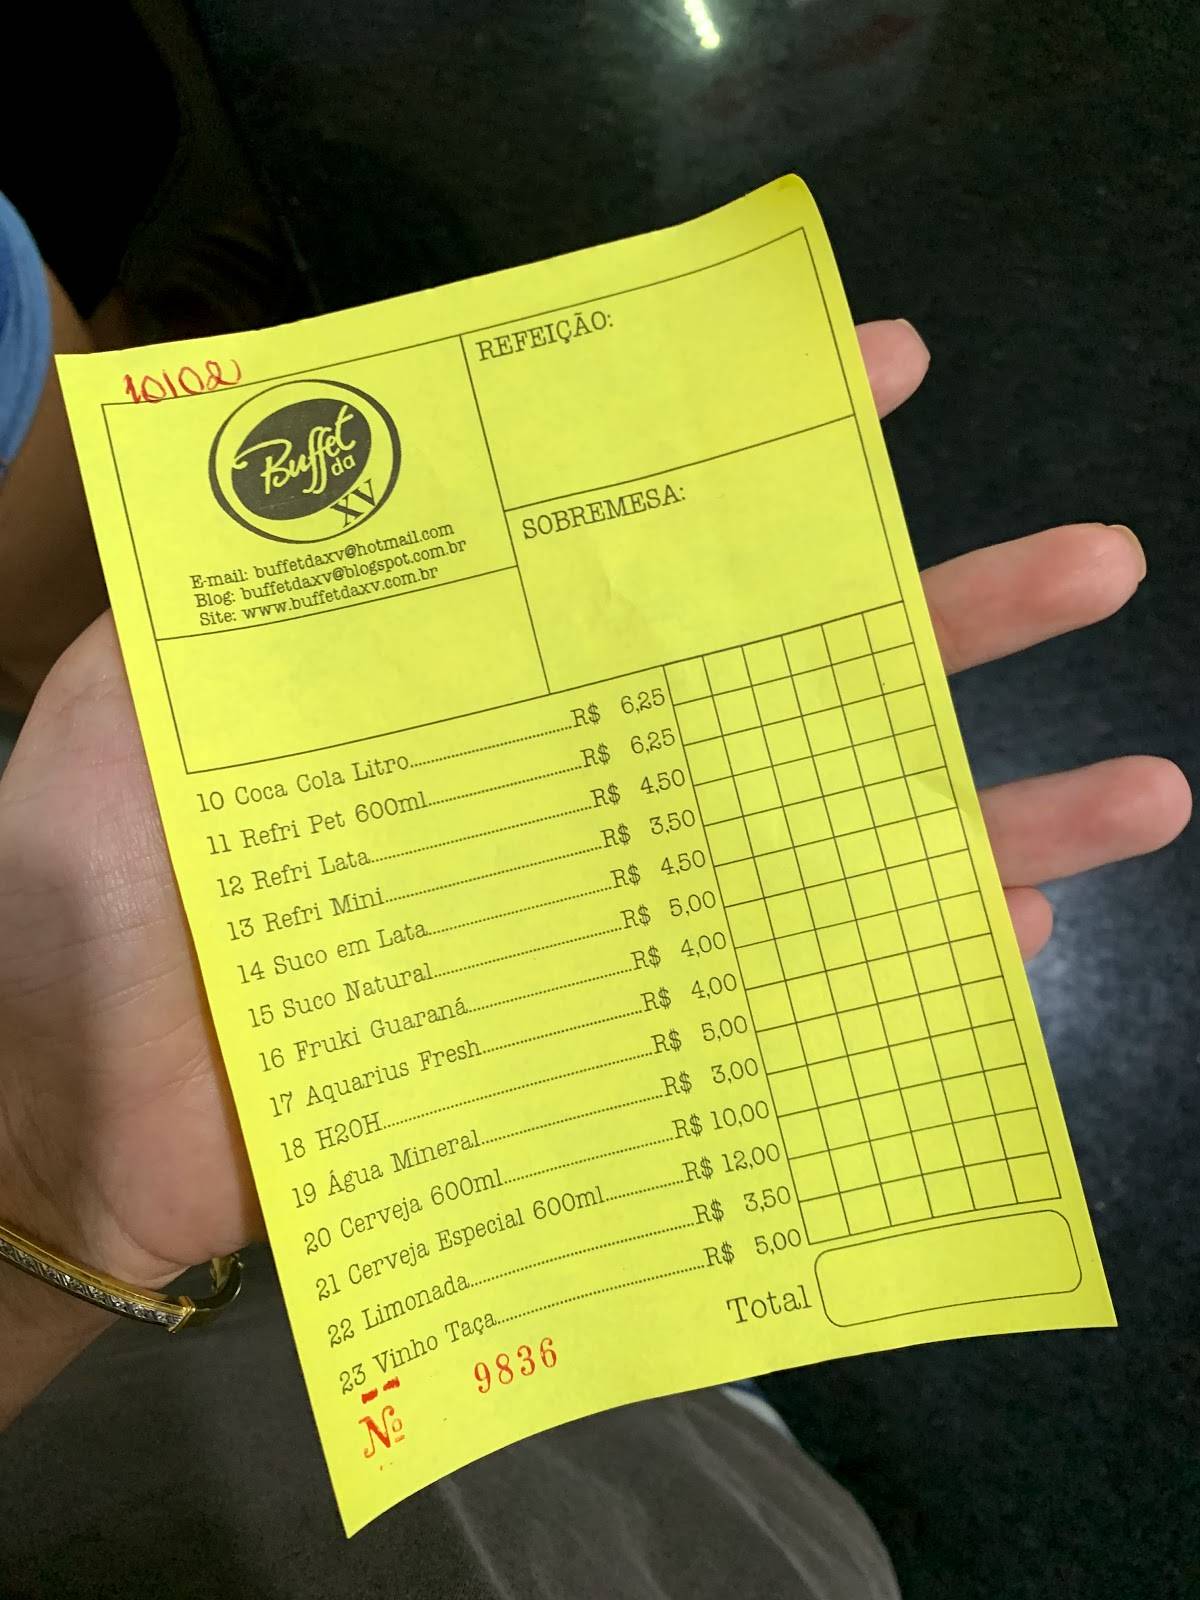 10/02
Buffet
da
XV
E-mail: buffetdaxv@hotmail.com
Blog: buffetdaxv@blogspot.com.br
Site: www.buffetdaxv.com.br
REFEIÇÃO:
SOBREMESA:
10 Coca Cola Litro..........R$ 6,25
11 Refri Pet 600ml..........R$ 6,25
12 Refri Lata..........R$ 4,50
13 Refri Mini..........R$ 3,50
14 Suco em Lata..........R$ 4,50
15 Suco Natural..........R$ 5,00
16 Fruki Guaraná..........R$ 4,00
17 Aquarius Fresh..........R$ 4,00
18 H2OH..........R$ 5,00
19 Água Mineral..........R$ 3,00
20 Cerveja 600ml..........R$ 10,00
21 Cerveja Especial 600ml..........R$ 12,00
22 Limonada..........R$ 3,50
23 Vinho Taça..........R$ 5,00
Total
Nº 9836